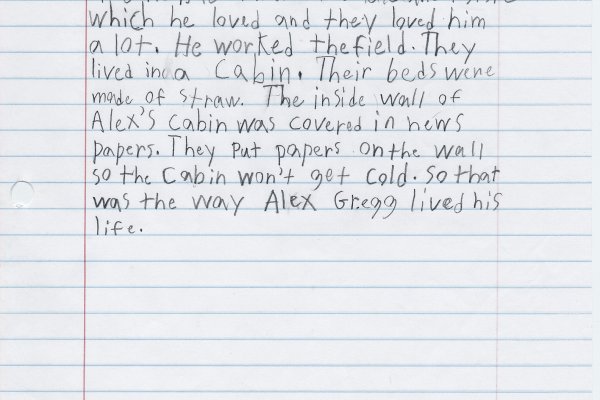 which he loved and they loved him
a lot. He worked thefield. They
lived in a Cabin. Their beds were
made of straw. The inside wall of
Alex's Cabin was covered in news
papers. They put papers on the wall
so the Cabin won't get cold. So that
was the way Alex Gregg lived his
life.